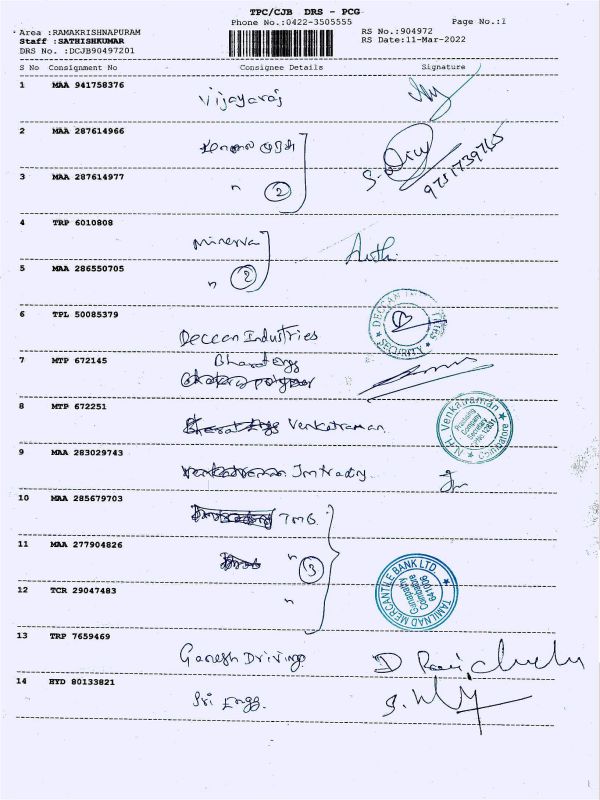 TPC/CJB DRS - PCG
Phone No.:0422-3505555
Page No.:1
Area :RAMAKRISHNAPURAM
RS No.:904972
Staff :SATHISHKUMAR
RS Date:11-Mar-2022
DRS No. :DCJB90497201
S No Consignment No Consignee Details Signature
1 MAA 941758376
Vijayaraj
2 MAA 287614966
9751739765
3 MAA 287614977
" 2
4 TRP 6010808
Minerva
5 MAA 286550705
" 2
6 TPL 50085379
Deccan Industries
DECCAN INDUSTRIES
SECURITY
7 MTP 672145
Bharat Engg
8 MTP 672251
Venkatraman
N.H. Venkatraman
Practising
Company
Secretary
Coimbatore
9 MAA 283029743
Jm trading
10 MAA 285679703
TMB
11 MAA 277904826
" 3
12 TCR 29047483
"
TAMILNAD MERCANTILE BANK LTD.
Ganapathy
Coimbatore
641006
13 TRP 7659469
Ganesh Driving
14 HYD 80133821
Sri Engg.